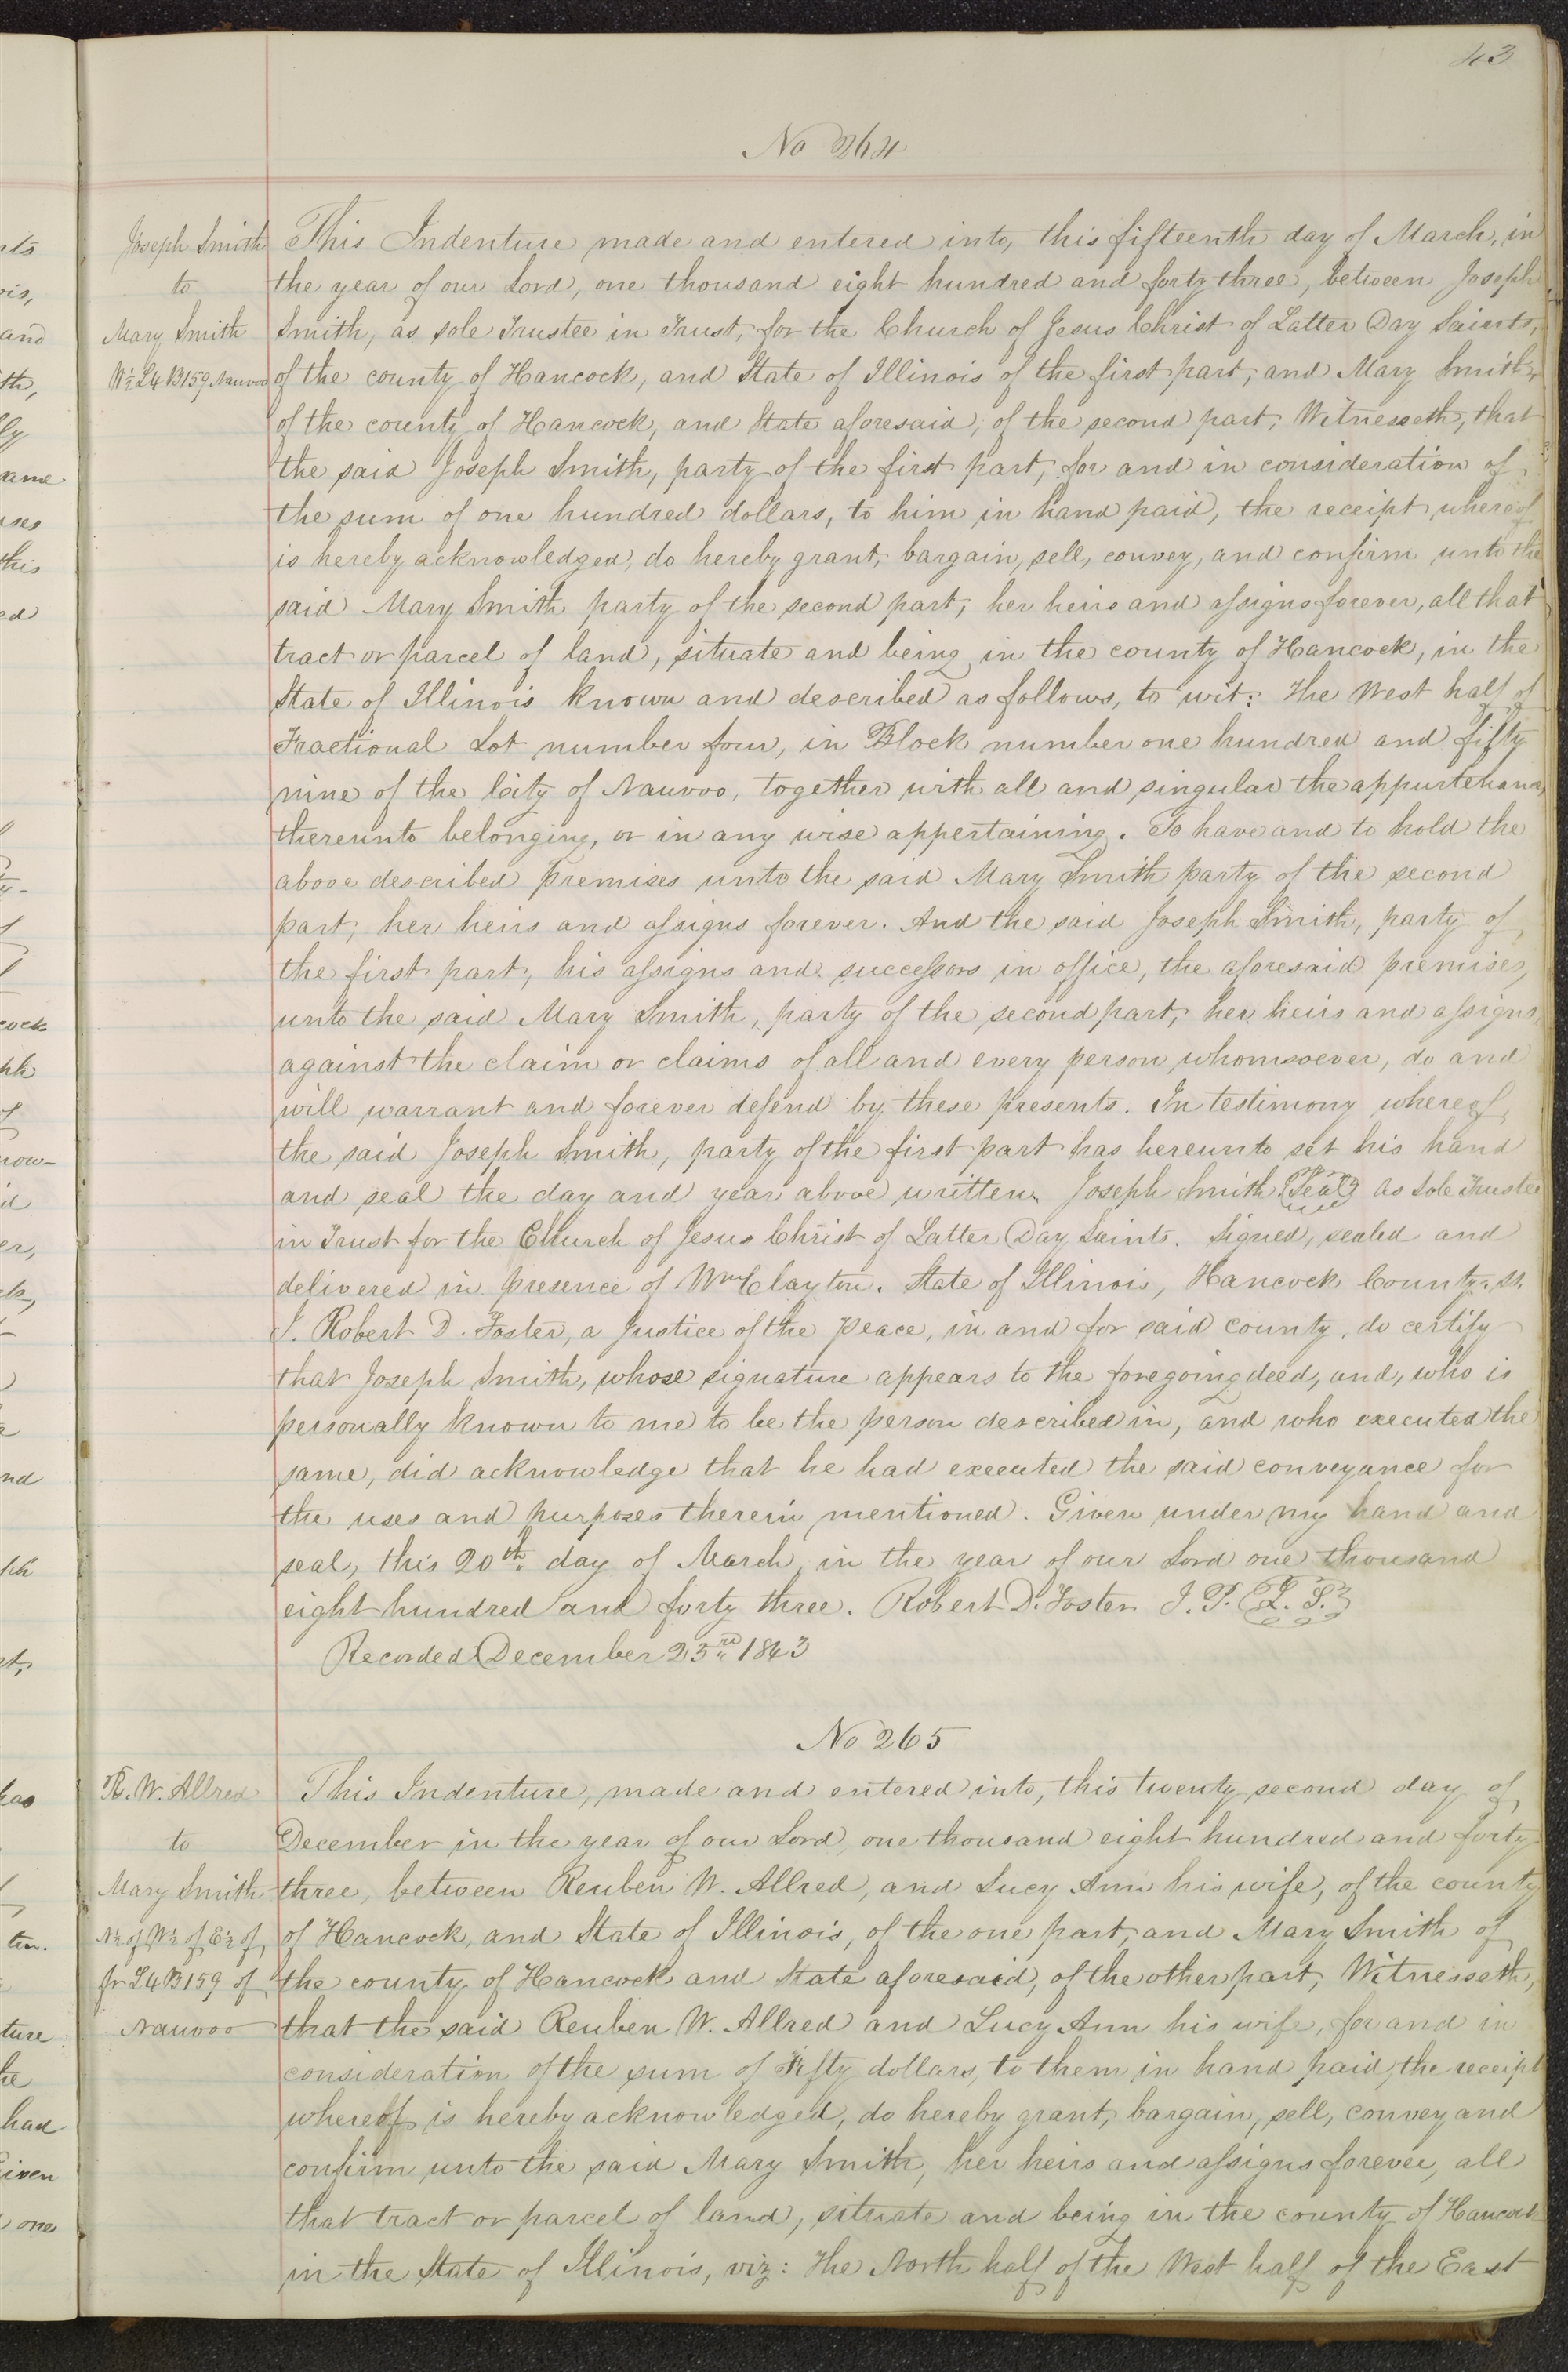 43
No 264
Joseph Smith
to
Mary Smith
W½ L4 B159 Nauvoo
This Indenture made and entered into, this fifteenth day of March, in
the year of our Lord, one thousand eight hundred and forty three, between Joseph
Smith, as sole Trustee in Trust, for the Church of Jesus Christ of Latter Day Saints,
of the county of Hancock, and State of Illinois of the first part, and Mary Smith,
of the county of Hancock, and State aforesaid, of the second part, Witnesseth, that
the said Joseph Smith, party of the first part, for and in consideration of
the sum of one hundred dollars, to him in hand paid, the receipt whereof
is hereby acknowledged, do hereby grant, bargain, sell, convey, and confirm unto the
said Mary Smith party of the second part, her heirs and assigns forever, all that
tract or parcel of land, situate and being in the county of Hancock, in the
State of Illinois known and described as follows, to wit: The West half of
Fractional Lot number four, in Block number one hundred and fifty
nine of the City of Nauvoo, together with all and singular the appurtenances
thereunto belonging, or in any wise appertaining. To have and to hold the
above described premises unto the said Mary Smith party of the second
part, her heirs and assigns forever. And the said Joseph Smith, party of
the first part, his assigns and successors in office, the aforesaid premises,
unto the said Mary Smith, party of the second part, her heirs and assigns,
against the claim or claims of all and every person whomsoever, do and
will warrant and forever defend by these presents. In testimony whereof,
the said Joseph Smith, party of the first part has hereunto set his hand
and seal the day and year above written. Joseph Smith Seal As Sole Trustee
in Trust for the Church of Jesus Christ of Latter Day Saints. Signed, sealed and
delivered in presence of Wm Clayton. State of Illinois, Hancock County, ss.
I. Robert D. Foster, a Justice of the Peace, in and for said county, do certify
that Joseph Smith, whose signature appears to the foregoing deed, and, who is
personally known to me to be the person described in, and who executed the
same, did acknowledge that he had executed the said conveyance for
the uses and purposes therein mentioned. Given under my hand and
seal, this 20th day of March, in the year of our Lord one thousand
eight hundred and forty three. Robert D. Foster J. P. L. S.
Recorded December 23rd 1843
No 265
R. W. Allred
to
Mary Smith
N½ of W½ of E½ of
fr L4 B159 of
Nauvoo
This Indenture, made and entered into, this twenty second day of
December in the year of our Lord, one thousand eight hundred and forty
three, between Reuben W. Allred, and Lucy Ann his wife, of the county
of Hancock, and State of Illinois, of the one part, and Mary Smith of
the county of Hancock and State aforesaid, of the other part, Witnesseth,
that the said Reuben W. Allred and Lucy Ann his wife, for and in
consideration of the sum of Fifty dollars, to them in hand paid, the receipt
whereof is hereby acknowledged, do hereby grant, bargain, sell, convey and
confirm unto the said Mary Smith, her heirs and assigns forever, all
that tract or parcel of land, situate and being in the county of Hancock
in the State of Illinois, viz: The North half of the West half of the East